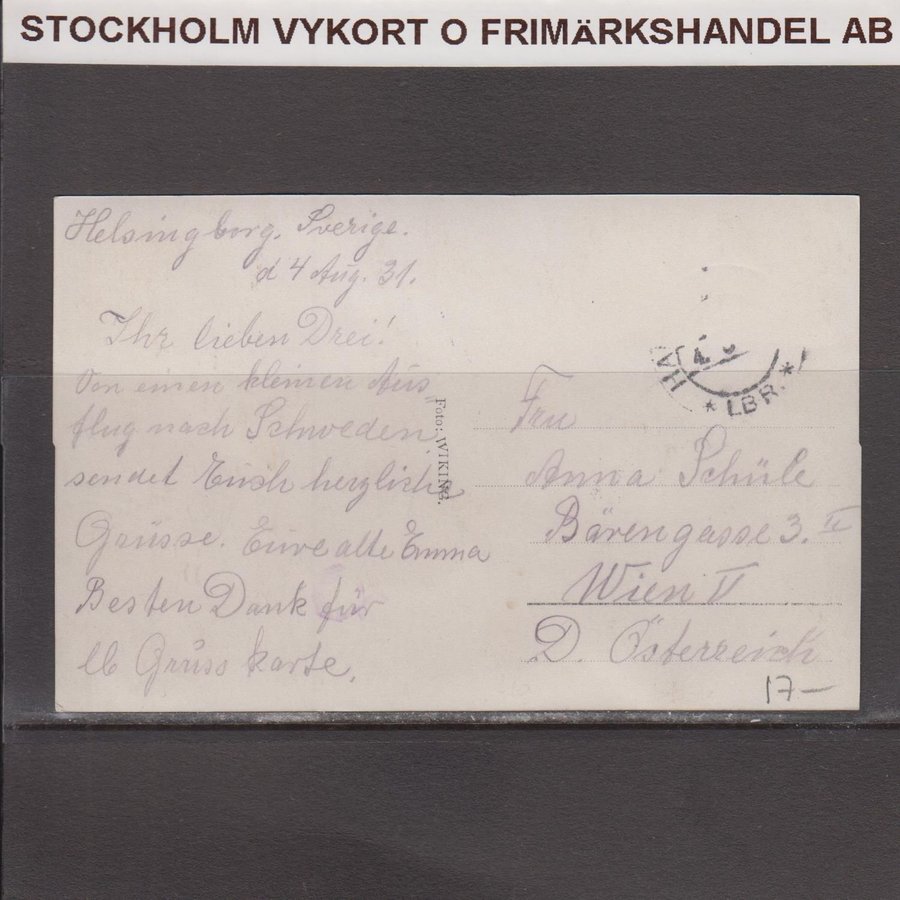 STOCKHOLM VYKORT O FRIMÄRKSHANDEL AB
Helsingborg. Sverige.
d 4 Aug. 31.
Ihr lieben Drei!
Von einen kleinen Aus
flug nach Schweden
sendet Euch herzliche
Grüsse. Eure alte Emma
Besten Dank für
lb Grüss karte.
Foto: WIKING.
4.
* LBR. *
Fru
Anna Schüle
Bärengasse 3. II
Wien V
D. Österreich
17-